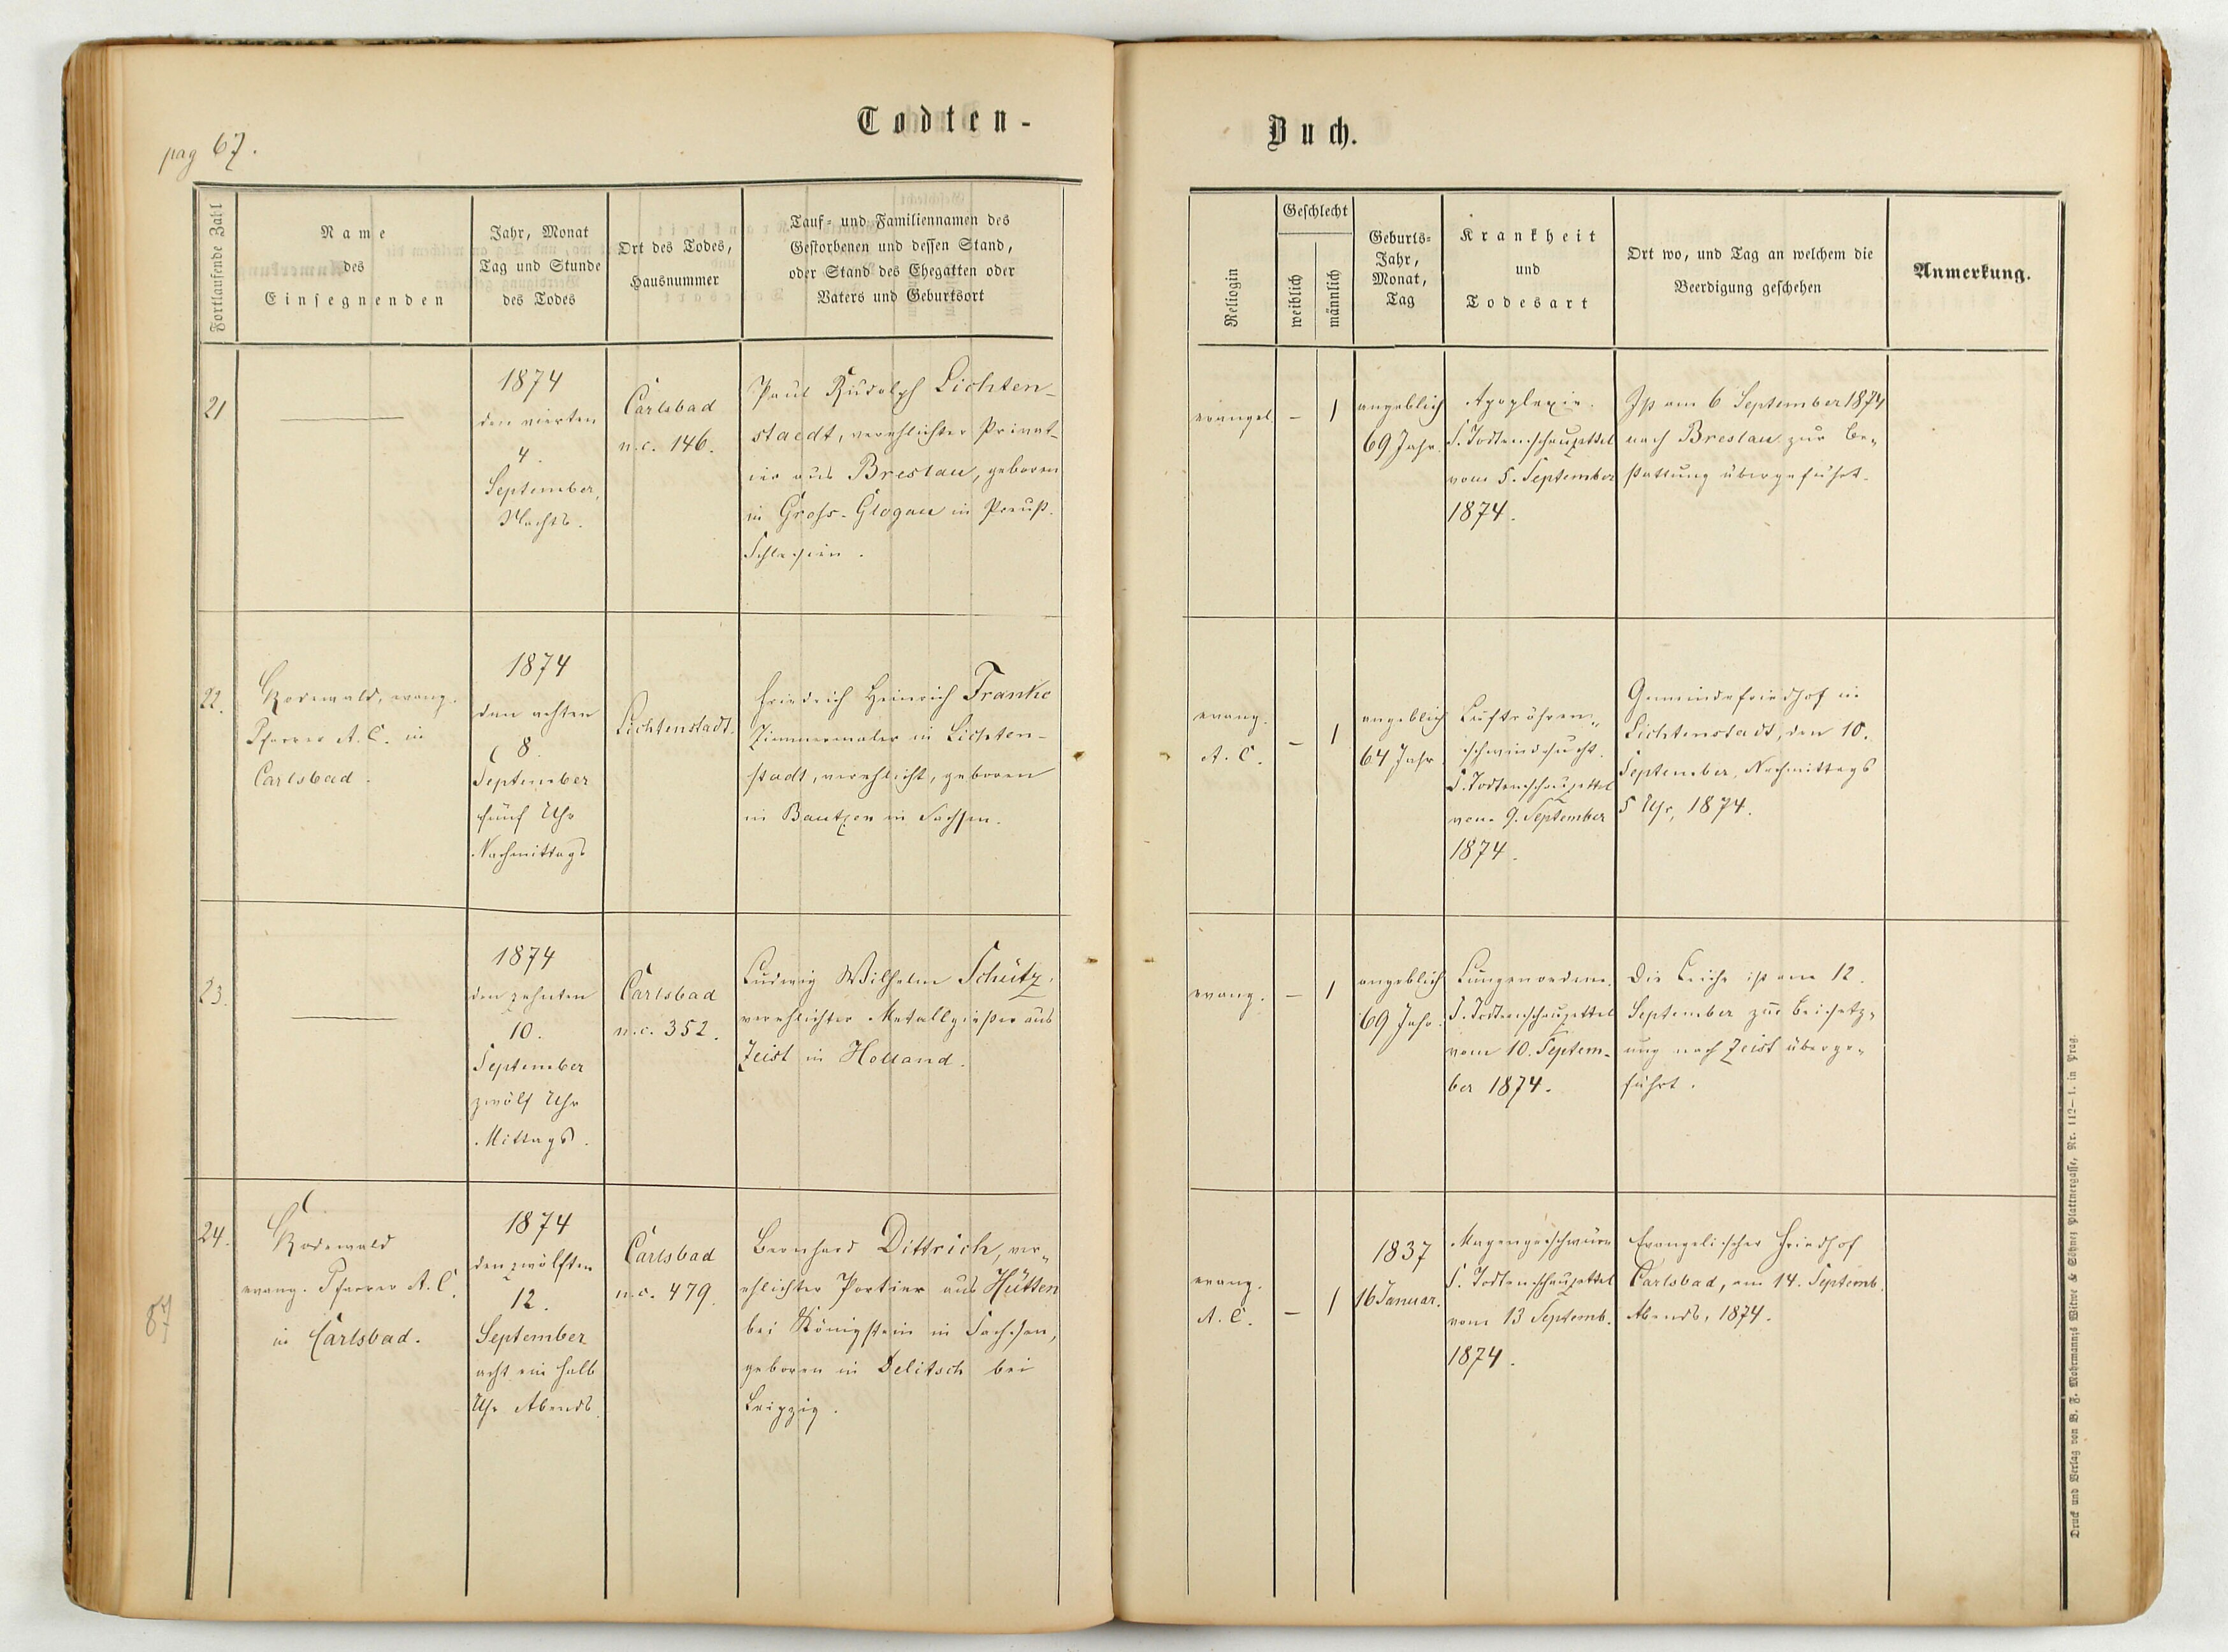 pag 67.
Todten-
Buch.
Fortlaufende Zahl
Name
des
Einsegnenden
Jahr, Monat
Tag und Stunde
des Todes
Ort des Todes,
Hausnummer
Tauf- und Familiennamen des
Gestorbenen und dessen Stand,
oder Stand des Ehegatten oder
Vaters und Geburtsort
Reliogin
Geschlecht
weiblich
männlich
Geburts-
Jahr,
Monat,
Tag
Krankheit
und
Todesart
Ort wo, und Tag an welchem die
Beerdigung geschehen
Anmerkung.
21
1874
den vierten
4.
September,
Nachts.
Carlsbad
n.c. 146.
Paul Rudolph Lichten-
staedt, verehlichter Privat-
ier aus Breslau, geboren
in Gross-Glogau in Preuß.
Schlesien.
evangel.
– 1
angeblich
69 Jahr.
Apoplexie.
S. Todtenschauzettel
vom 5. September
1874.
Ist am 6 September 1874
nach Breslau zur Be-
stattung übergeführt.
22.
Rodewald, evang.
Pfarrer A. C. in
Carlsbad.
1874
den achten
8.
September
fünf Uhr
Nachmittags
Lichtenstadt.
Friedrich Heinrich Franke
Zimmermaler in Lichten-
stadt, verehlicht, geboren
in Bautzen in Sachsen.
evang.
A. C.
– 1
angeblich
64 Jahr.
Luftröhren-
schwindsucht.
S. Todtenschauzettel
vom 9. September
1874.
Gemeindefriedhof in
Lichtenstadt, den 10.
September, Nachmittags
5 Uhr, 1874.
23.
1874
den zehnten
10.
September
zwölf Uhr
Mittags.
Carlsbad
n.c. 352.
Ludwig Wilhelm Schütz,
verehlichter Metallgießer aus
Zeist in Holland.
evang.
– 1
angeblich
69 Jahr.
Lungenoedem.
S. Todtenschauzettel
vom 10. Septem-
ber 1874.
Die Leiche ist am 12.
September zur Beisetz-
ung nach Zeist überge-
führt.
24.
Rodewald
evang. Pfarrer A. C.
in Carlsbad.
1874
den zwölften
12.
September
acht ein halb
Uhr Abends.
Carlsbad
n.c. 479.
Bernhard Dittrich, ver-
ehlichter Portier aus Hütten
bei Königstein in Sachsen,
geboren in Delitsch bei
Leipzig.
evang.
A. C.
– 1
1837
16 Januar.
Magengeschwüre
S. Todtenschauzettel
vom 13 Septemb.
1874.
Evangelischer Friedhof
Carlsbad, am 14. Septemb.
Abends, 1874.
87
Druck und Verlag von B. F. Mohrmann's Witwe & Söhne, Plattnergasse, Nr. 112–1. in Prag.